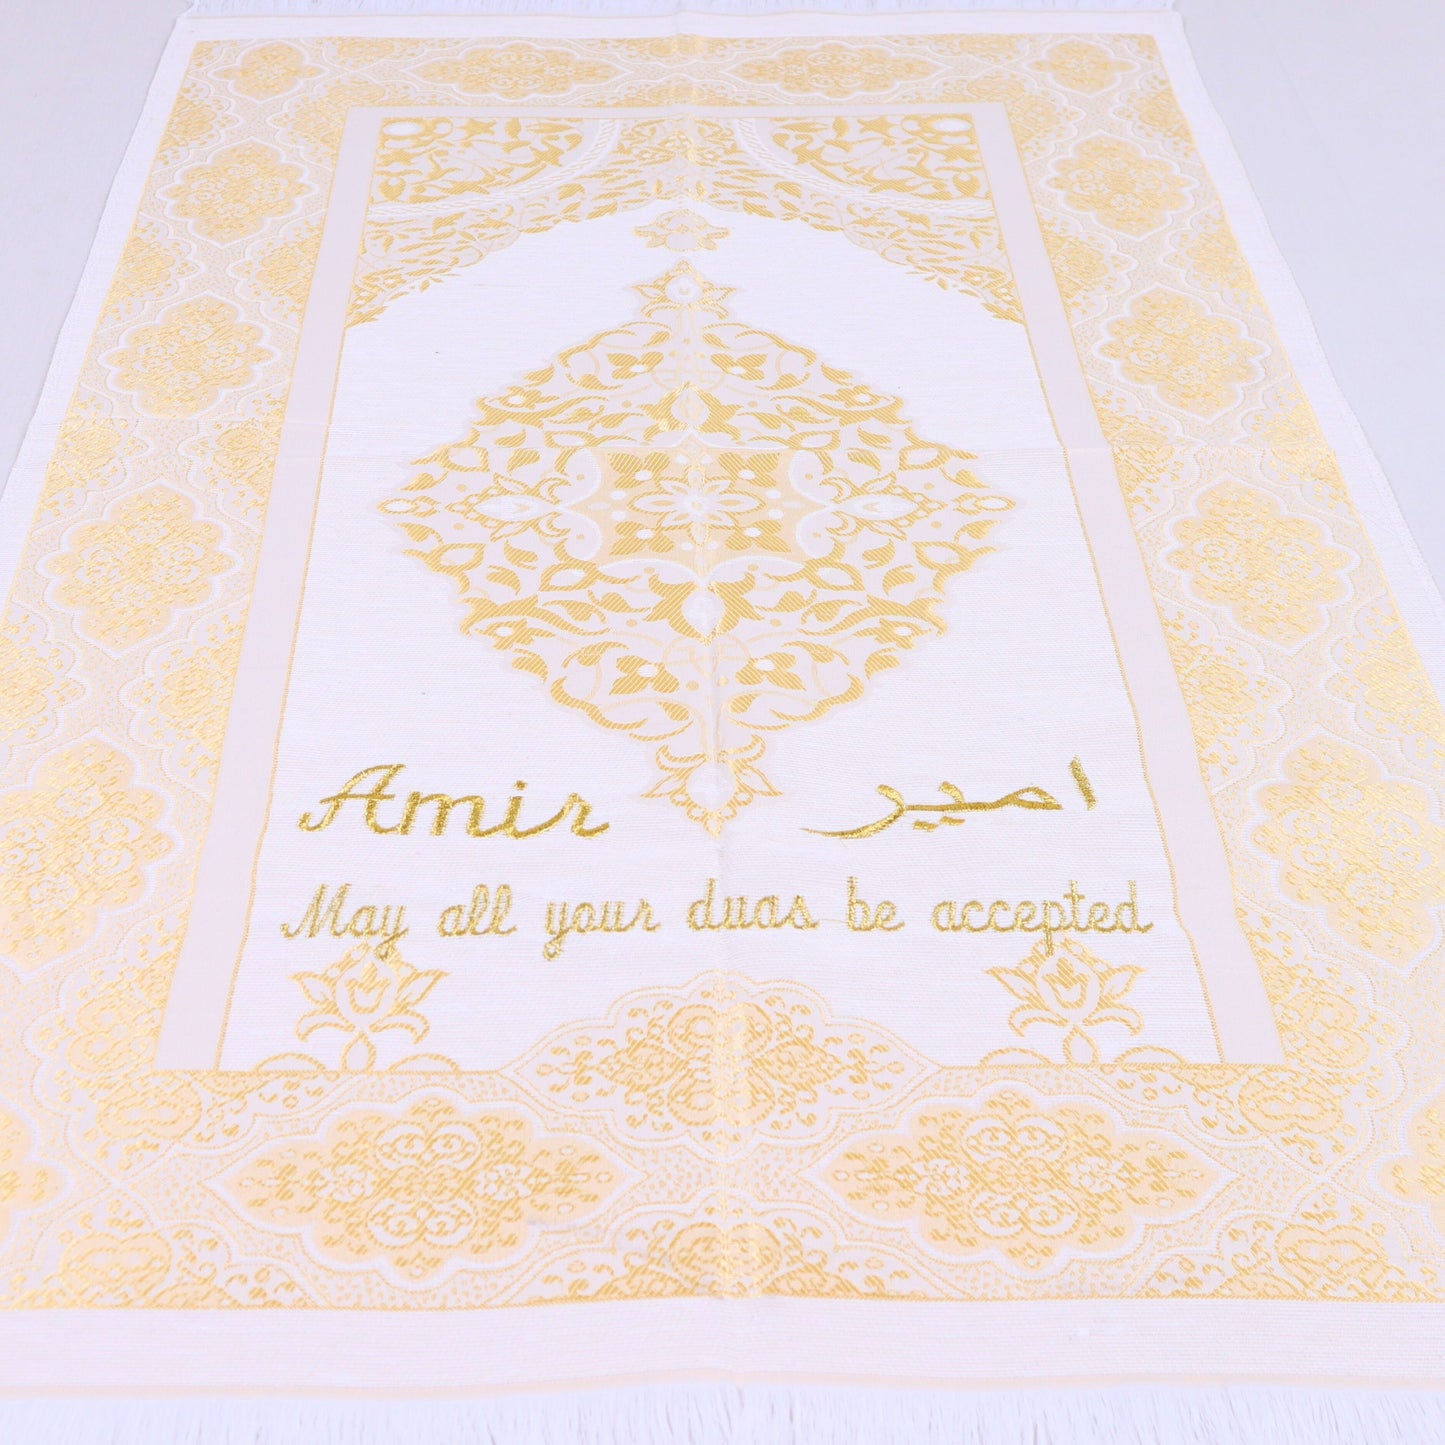 Amir امير
May all your duas be accepted